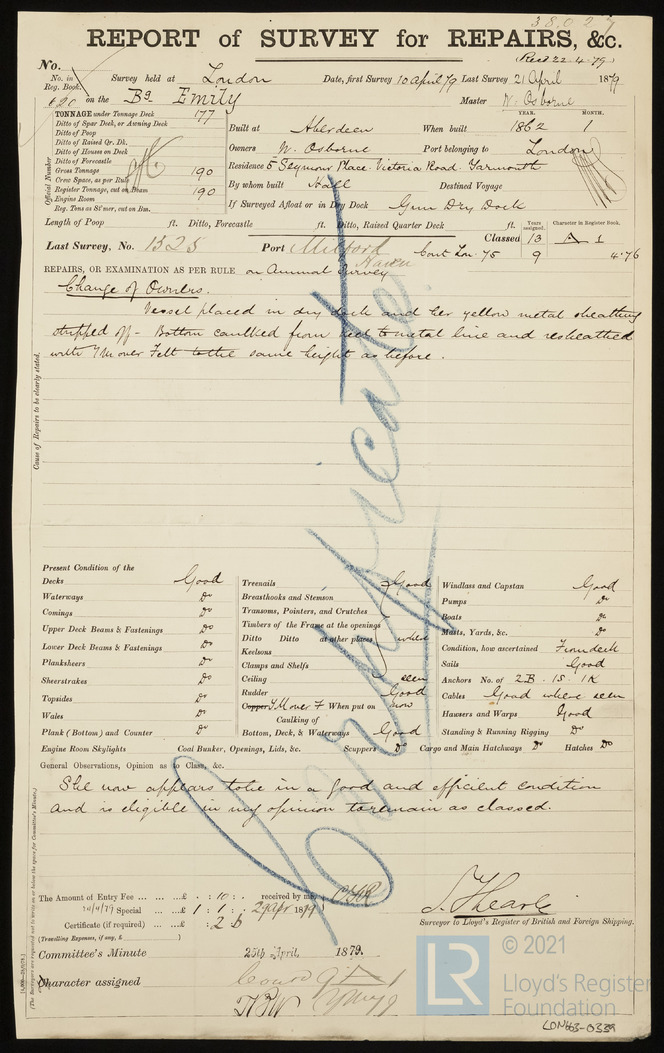 38027
REPORT of SURVEY for REPAIRS, &c.
Recd 22.4.79
No.
No. in Reg. Book.
Survey held at London Date, first Survey 10 April 79 Last Survey 21 April 1879
620 on the Bq Emily Master W. Osborne
TONNAGE under Tonnage Deck 177
Ditto of Spar Deck, or Awning Deck
Ditto of Poop
Ditto of Raised Qr. Dk.
Ditto of Houses on Deck
Ditto of Forecastle
Gross Tonnage 190
Crew Space, as per Rule
Register Tonnage, cut on Beam 190
Engine Room
Reg. Tons as St'mer, cut on Bm.
Official Number
YEAR. MONTH.
Built at Aberdeen When built 1862 1
Owners W. Osborne Port belonging to London
Residence 5 Seymour Place. Victoria Road. Yarmouth
By whom built Hall Destined Voyage
If Surveyed Afloat or in Dry Dock Gun Dry Dock
Length of Poop ft. Ditto, Forecastle ft. Ditto, Raised Quarter Deck ft.
Years assigned. Character in Register Book.
Last Survey, No. 1525 Port Milford Haven Classed 13 A 1
Cont Lon. 75 9 4.76
REPAIRS, OR EXAMINATION AS PER RULE on Annual Survey
Change of Owners.
Vessel placed in dry dock and her yellow metal sheathing
stripped off - Bottom caulked from keel to metal line and resheathed
with YM over Felt to the same height as before.
Cause of Repairs to be clearly stated.
Certificate
Present Condition of the
Decks Good
Waterways Do
Comings Do
Upper Deck Beams & Fastenings Do
Lower Deck Beams & Fastenings Do
Planksheers Do
Sheerstrakes Do
Topsides Do
Wales Do
Plank (Bottom) and Counter Do
Engine Room Skylights Coal Bunker, Openings, Lids, &c. Scuppers Do Cargo and Main Hatchways Do Hatches Do
Treenails Good
Breasthooks and Stemson
Transoms, Pointers, and Crutches
Timbers of the Frame at the openings
Ditto Ditto at other places where
Keelsons
Clamps and Shelfs
Ceiling seen
Rudder Good
Copper YM over F When put on now
Caulking of
Bottom, Deck, & Waterways Good
Windlass and Capstan Good
Pumps Do
Boats Do
Masts, Yards, &c. Do
Condition, how ascertained From deck
Sails Good
Anchors No. of 2B. 1S. 1K
Cables Good where seen
Hawsers and Warps Good
Standing & Running Rigging Do
General Observations, Opinion as to Class, &c.
She now appears to be in a good and efficient condition
and is eligible in my opinion to remain as classed.
The Amount of Entry Fee £ : 10 : received by me,
Special £ 1 : 1 : 29 Apr 1879
Certificate (if required) : 2 6
(Travelling Expenses, if any, £ )
Surveyor to Lloyd's Register of British and Foreign Shipping.
Committee's Minute 25th April, 1879.
Character assigned Contd 9 A 1
© 2021
LR
Lloyd's Register
Foundation
LON463-0339